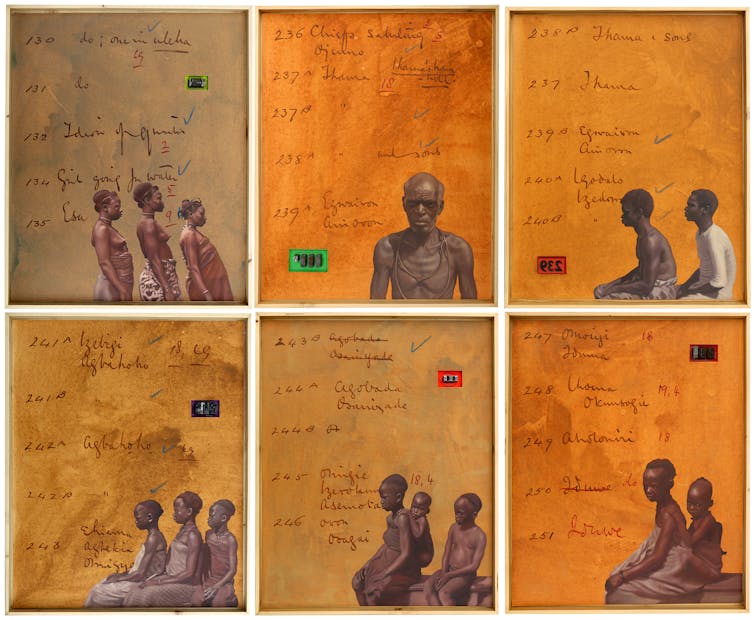 130 do ; one in uleha
19
131 do
132
2
134 Girl going for water
5
135 Esa
9
236 Chiefs saluting 5
Ojuno
237A Thama
18
237B "
238A " and sons
239A Egwaison
Amoron
238B Thama & sons
237 Thama
239B Egwaison
Amoron
240A Igodalo
Izedom
240B "
239
241A Izebigi
Agbahoho
18, 19
241B
242A Agbahoho
19
242B "
243 Ehiama
Agbekia
Omigyo
243B Agobada
Osaniyade
244A Agobada
Osaniyade
244B A
245 Omigie
18, 4
Izevokum
Asemota
246 Ovon
Osagai
247 Omoriyi
18
Idunia
248 Uhoma
19, 4
Okunsogie
249 Aholomiri
18
250 Iduwe do
251 Iduwe